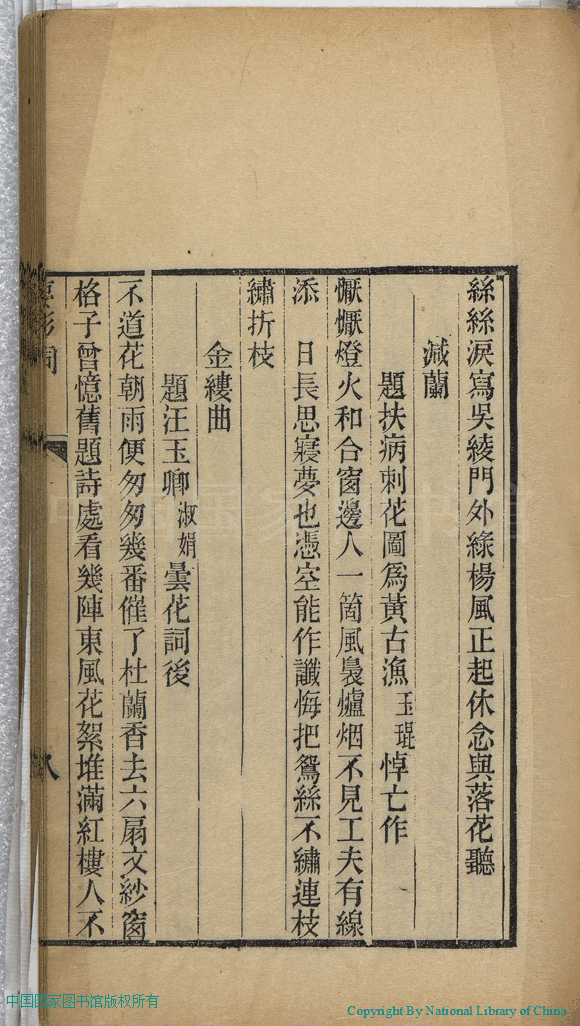 絲絲淚寫吳綾門外綠楊風正起休念與落花聽
減蘭
題扶病刺花圖爲黃古漁玉琨悼亡作
懨懨燈火和合窗邊人一箇風裊爐烟不見工夫有線
添　日長思寢夢也憑空能作讖悔把鴛絲不繡連枝
繡折枝
金縷曲
題汪玉卿淑娟曇花詞後
不道花朝雨便匆匆幾番催了杜蘭香去六扇文紗窗
格子曾憶舊題詩處看幾陣東風花絮堆滿紅樓人不
影詞
八
中国国家图书馆版权所有
Copyright By National Library of China